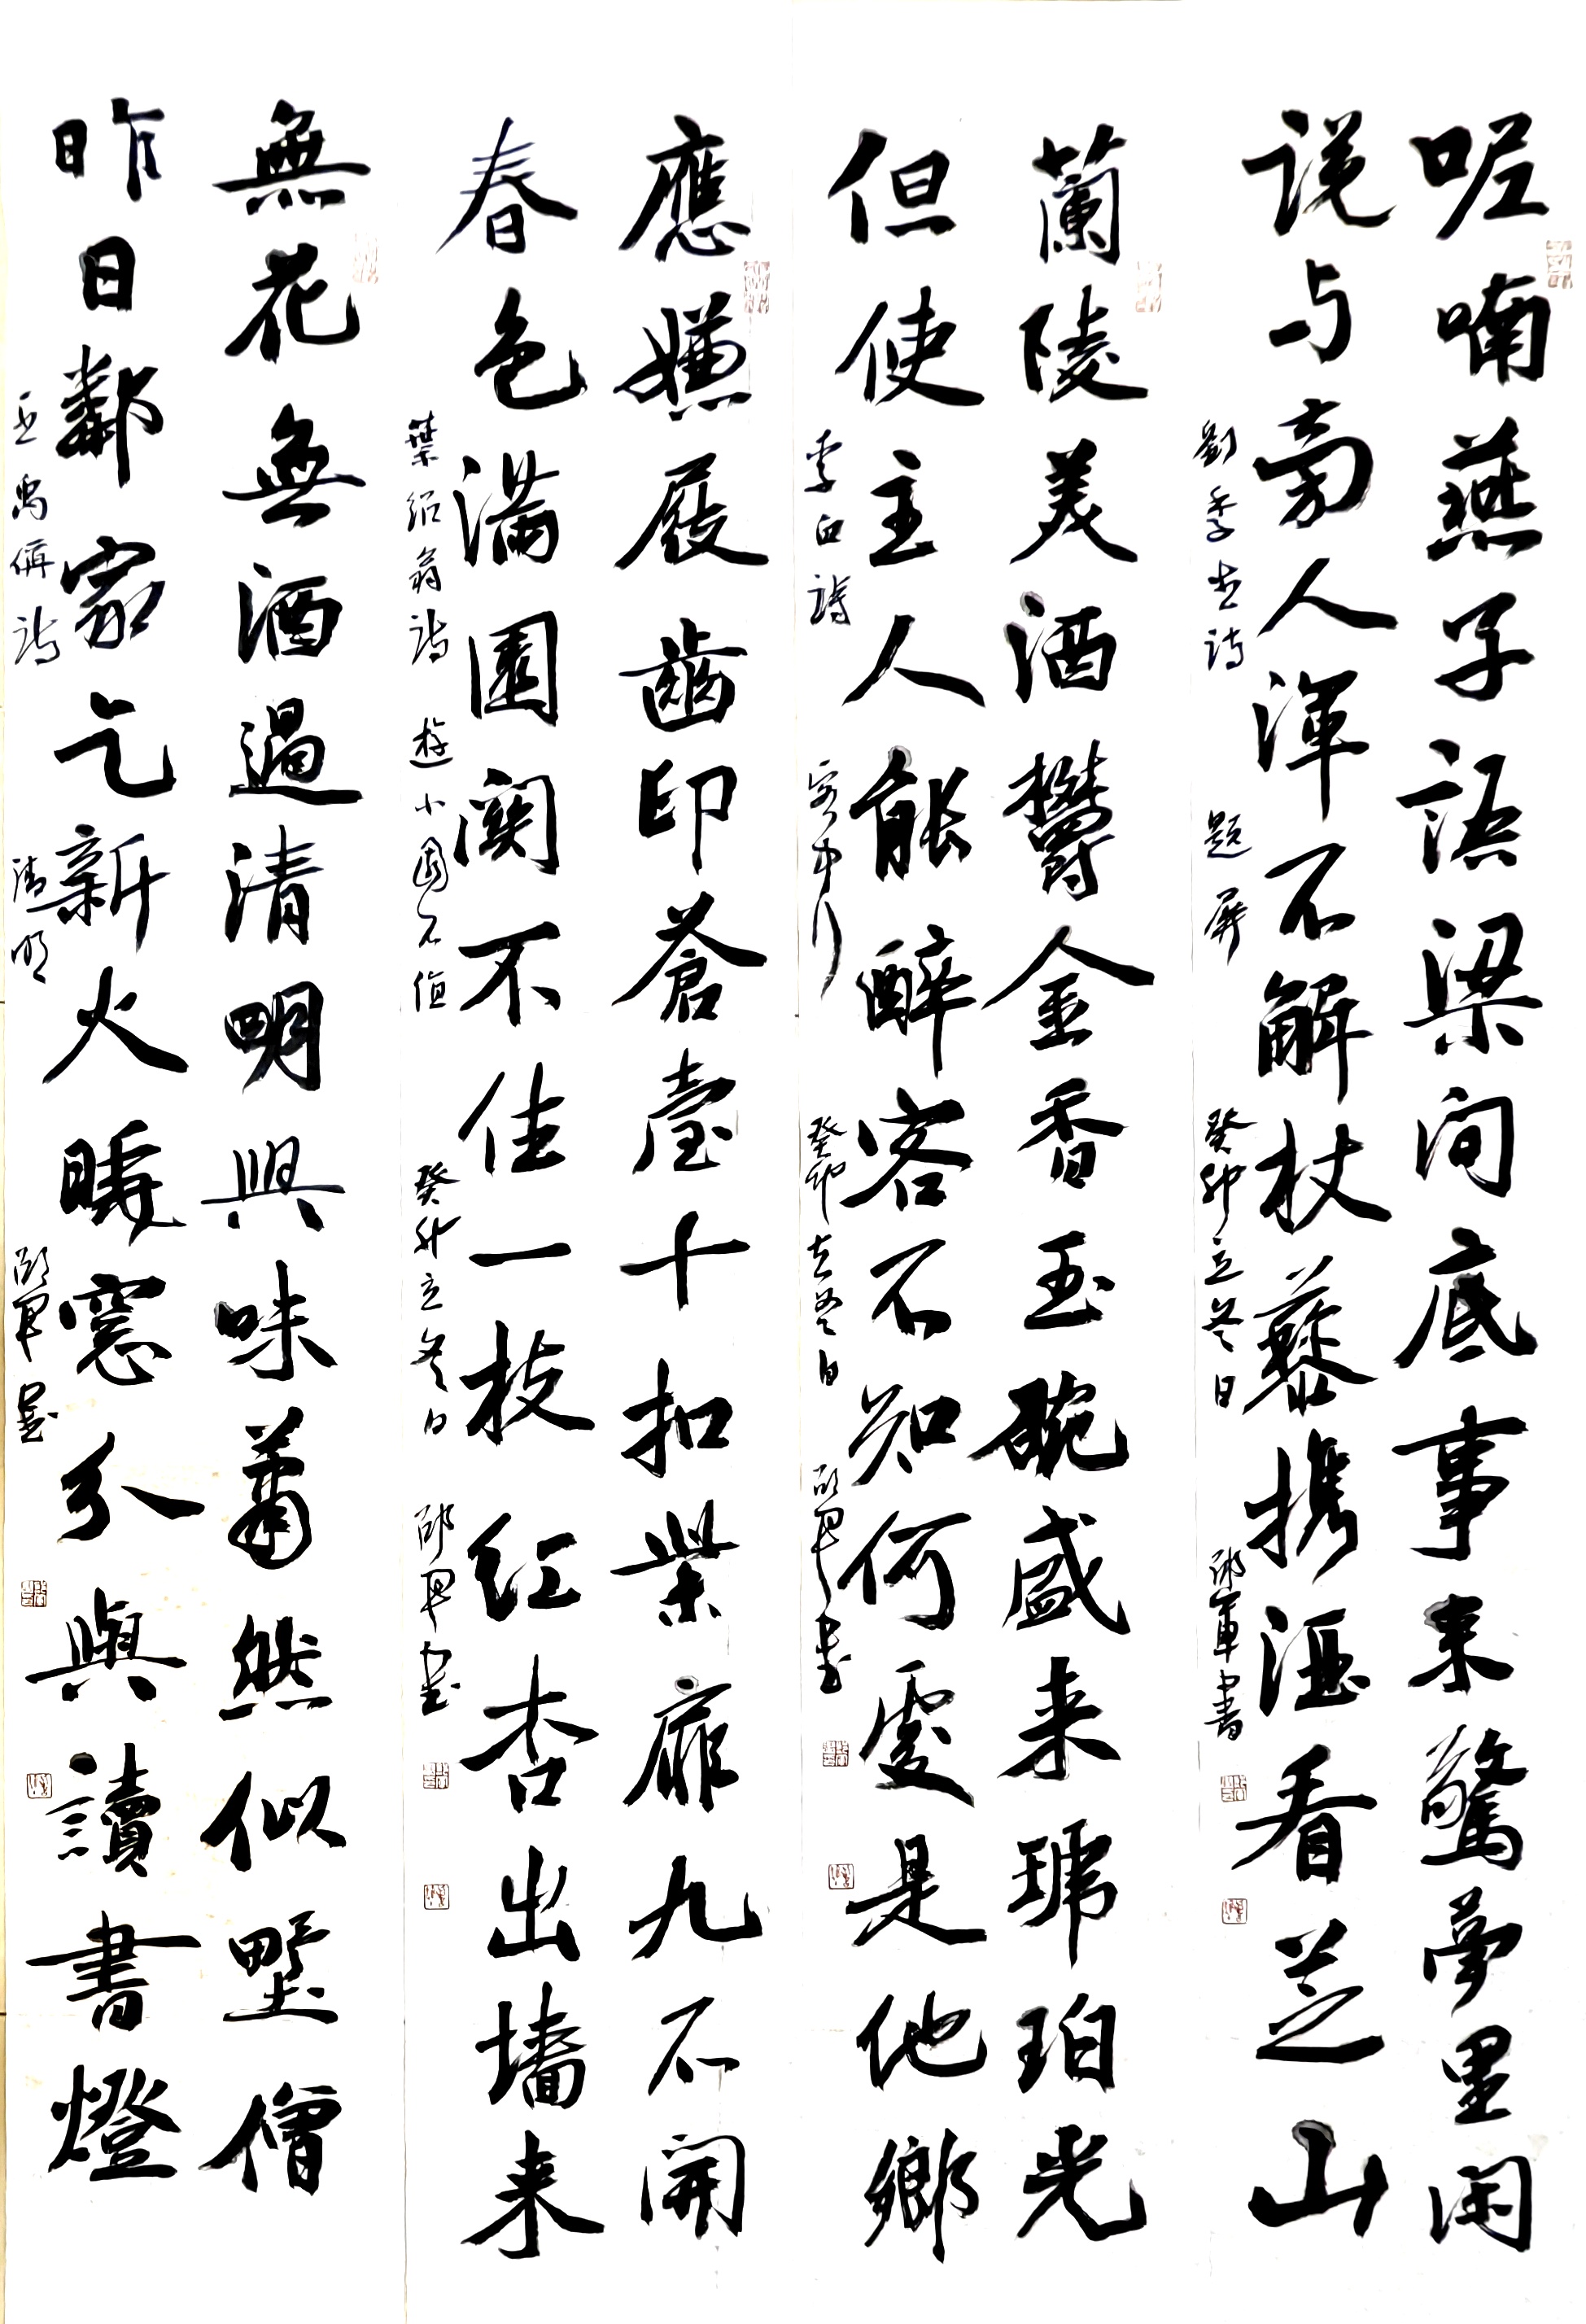 呢喃燕子語梁间底事来驚夢里闲
说与旁人渾不解杖藜携酒看芝山
劉季孙诗 題屏 癸卯立冬日 邱軍書
蘭陵美酒鬱金香玉碗盛来琥珀光
但使主人能醉客不知何處是他鄉
李白詩 客中行 癸卯立冬日 邱軍书
應嫌屐齒印蒼苔十扣柴扉九不開
春色满園関不住一枝红杏出墙来
葉绍翁詩 遊小園不值 癸卯立冬日 邱軍書
無花無酒過清明興味蕭然似野僧
昨日鄰家乞新火曉窓分與讀書燈
王禹偁詩 清明 邱軍書